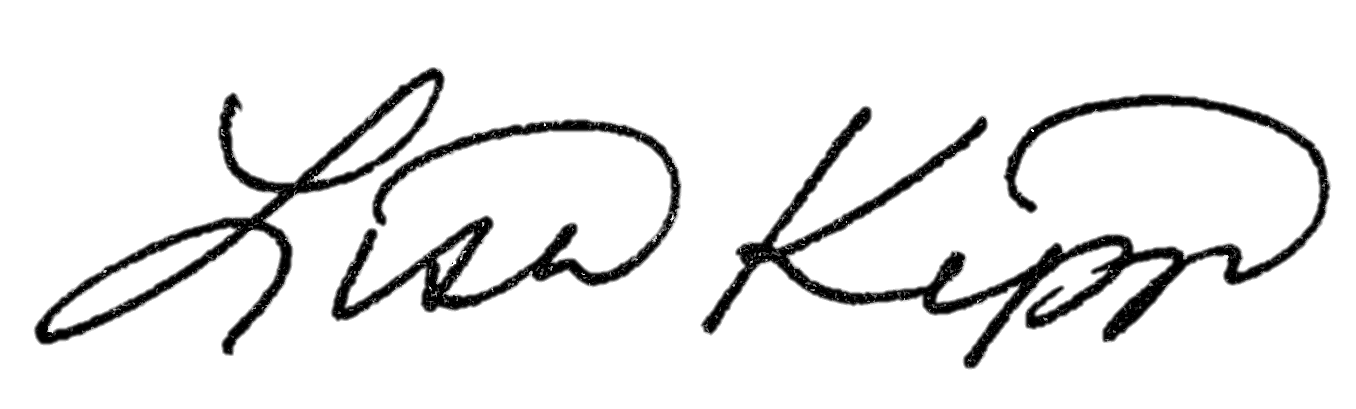 Lisa Kepp